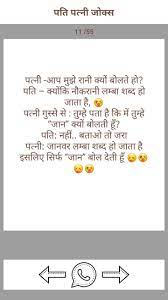 पति पत्नी जोक्स
11 /59
पत्नी -आप मुझे रानी क्यों बोलते हो?
पति – क्योंकि नौकरानी लम्बा शब्द हो
जाता है, 😵
पत्नी गुस्से से : तुम्हे पता है कि में तुम्हे
"जान" क्यों बोलती हूँ?
पति: नहीं.. बताओ तो जरा
पत्नी: जानवर लम्बा शब्द हो जाता है
इसलिए सिर्फ "जान" बोल देती हूँ 😄😄
😄😵